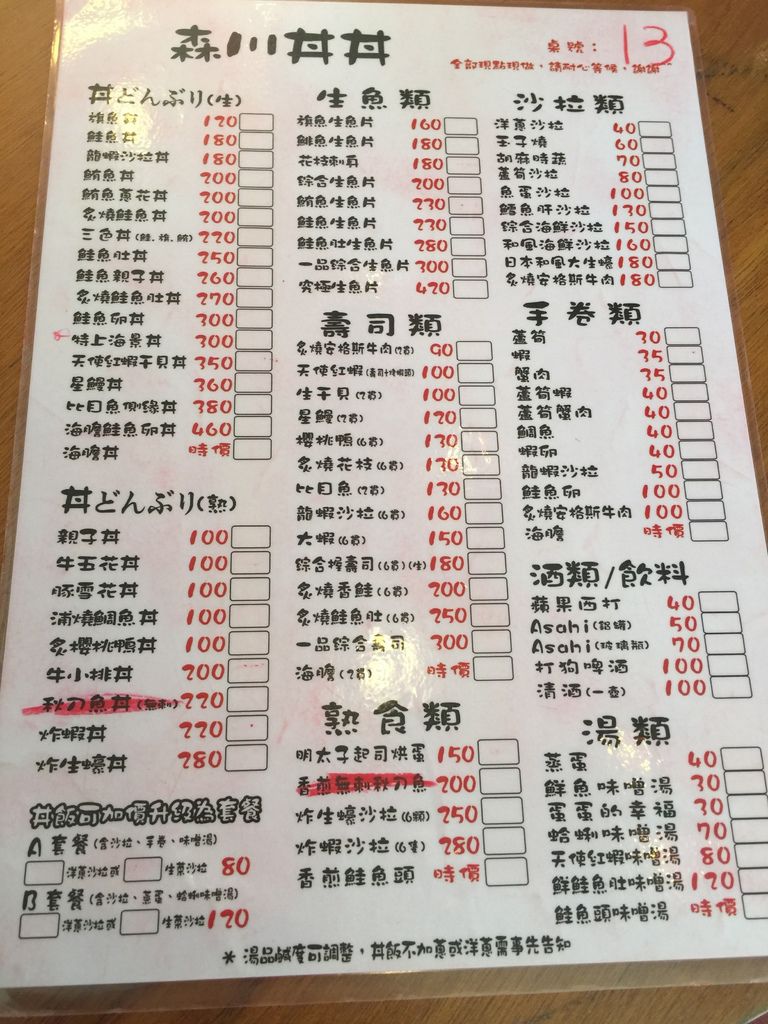 森川丼丼
桌號： 13
全部現點現做，請耐心等候，謝謝
丼どんぶり(生)
旗魚丼 120
鮭魚丼 180
龍蝦沙拉丼 180
鮪魚丼 200
鮪魚蔥花丼 200
炙燒鮭魚丼 200
三色丼(鮭.旗.鮪) 220
鮭魚肚丼 250
鮭魚親子丼 260
炙燒鮭魚肚丼 270
鮭魚卵丼 300
特上海景丼 300
天使紅蝦干貝丼 350
星鰻丼 360
比目魚側緣丼 380
海膽鮭魚卵丼 460
海膽丼 時價
丼どんぶり(熟)
親子丼 100
牛五花丼 100
豚雪花丼 100
浦燒鯛魚丼 100
炙櫻桃鴨丼 100
牛小排丼 200
秋刀魚丼(無刺) 220
炸蝦丼 220
炸生蠔丼 280
丼飯可加價升級為套餐
A 套餐(含沙拉、手卷、味噌湯)
洋蔥沙拉或 生菜沙拉 80
B 套餐(含沙拉、蒸蛋、蛤蜊味噌湯)
洋蔥沙拉或 生菜沙拉 120
生魚類
旗魚生魚片 160
鯡魚生魚片 180
花枝刺身 180
綜合生魚片 200
鮪魚生魚片 230
鮭魚生魚片 230
鮭魚肚生魚片 280
一品綜合生魚片 300
究極生魚片 420
壽司類
炙燒安格斯牛肉(2貫) 90
天使紅蝦(壽司+烤蝦頭) 100
生干貝(2貫) 100
星鰻(2貫) 120
櫻桃鴨(6貫) 130
炙燒花枝(6貫) 130
比目魚(2貫) 130
龍蝦沙拉(6貫) 160
大蝦(6貫) 150
綜合握壽司(6貫)(生) 180
炙燒香鮭(6貫) 200
炙燒鮭魚肚(6貫) 250
一品綜合壽司 300
海膽(2貫) 時價
熟食類
明太子起司烘蛋 150
香煎無刺秋刀魚 200
炸生蠔沙拉(6顆) 250
炸蝦沙拉(6隻) 280
香煎鮭魚頭 時價
沙拉類
洋蔥沙拉 40
玉子燒 60
胡麻時蔬 70
蘆筍沙拉 80
魚蛋沙拉 100
鱈魚肝沙拉 130
綜合海鮮沙拉 150
和風海鮮沙拉 160
日本和風大生蠔 180
炙燒安格斯牛肉 180
手卷類
蘆筍 30
蝦 35
蟹肉 35
蘆筍蝦 40
蘆筍蟹肉 40
鯛魚 40
蝦卵 40
龍蝦沙拉 50
鮭魚卵 100
炙燒安格斯牛肉 100
海膽 時價
酒類/飲料
蘋果西打 40
Asahi(鋁罐) 50
Asahi(玻璃瓶) 70
打狗啤酒 100
清酒(一壺) 100
湯類
蒸蛋 40
鮮魚味噌湯 30
蛋蛋的幸福 30
蛤蜊味噌湯 70
天使紅蝦味噌湯 80
鮮鮭魚肚味噌湯 120
鮭魚頭味噌湯 時價
* 湯品鹹度可調整，丼飯不加蔥或洋蔥需事先告知